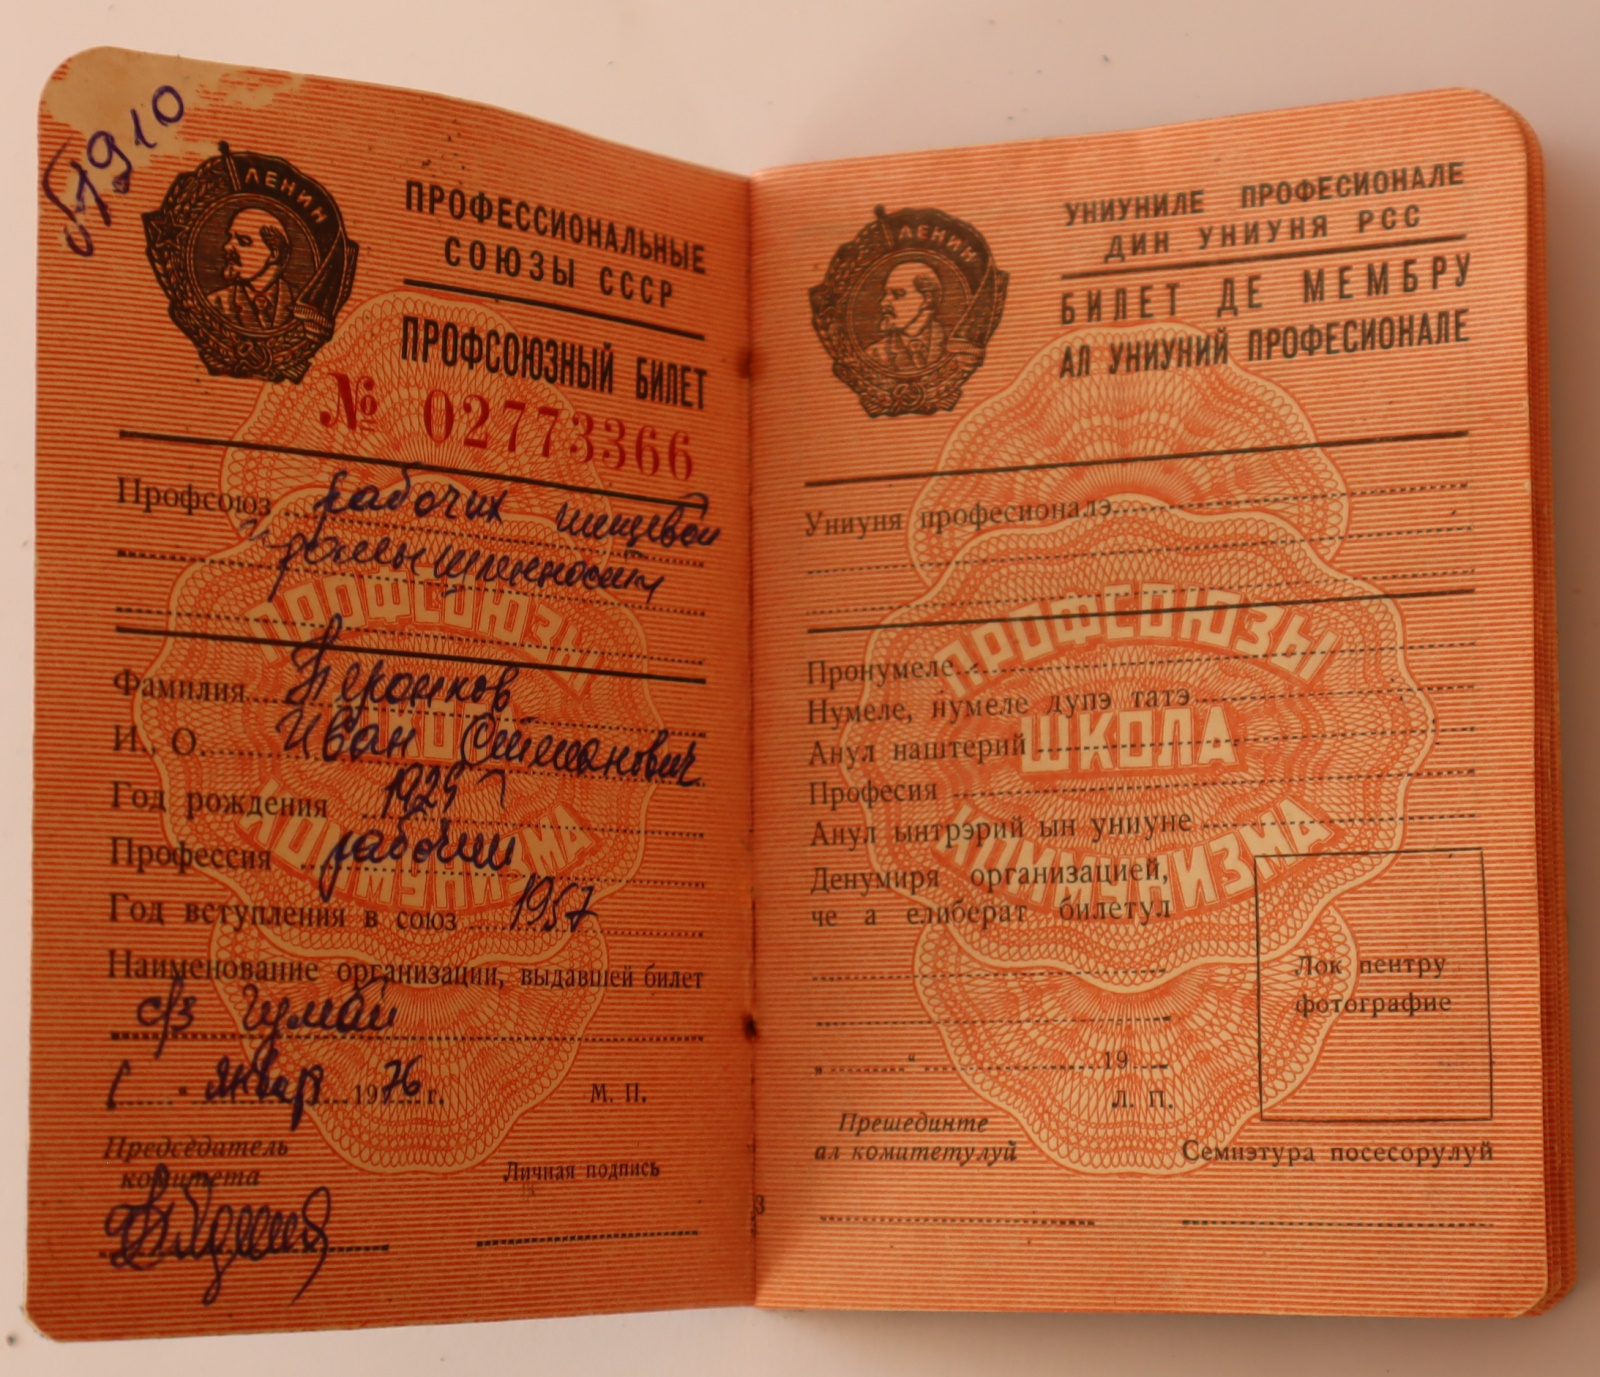 ЛЕНИН
ПРОФЕССИОНАЛЬНЫЕ
СОЮЗЫ СССР
ПРОФСОЮЗНЫЙ БИЛЕТ
№ 02773366
Профсоюз рабочих пищевой
промышленности
Фамилия
И., О. Иван Степанович
Год рождения 1925
Профессия рабочий
Год вступления в союз 1957
Наименование организации, выдавшей билет
с/з
1 " январ 1976 г.
М. П.
Председатель
комитета
Личная подпись
ПРОФСОЮЗЫ
ШКОЛА
КОММУНИЗМА
ЛЕНИН
УНИУНИЛЕ ПРОФЕСИОНАЛЕ
ДИН УНИУНЯ РСС
БИЛЕТ ДЕ МЕМБРУ
АЛ УНИУНИЙ ПРОФЕСИОНАЛЕ
Униуня професионалэ
Пронумеле
Нумеле, нумеле дупэ татэ
Анул наштерий
Професия
Анул ынтрэрий ын униуне
Денумиря организацией,
че а елиберат билетул
„ “ 19
Л. П.
Прешединте
ал комитетулуй
Лок пентру
фотографие
Семнэтура посесорулуй
ПРОФСОЮЗЫ
ШКОЛА
КОММУНИЗМА
3